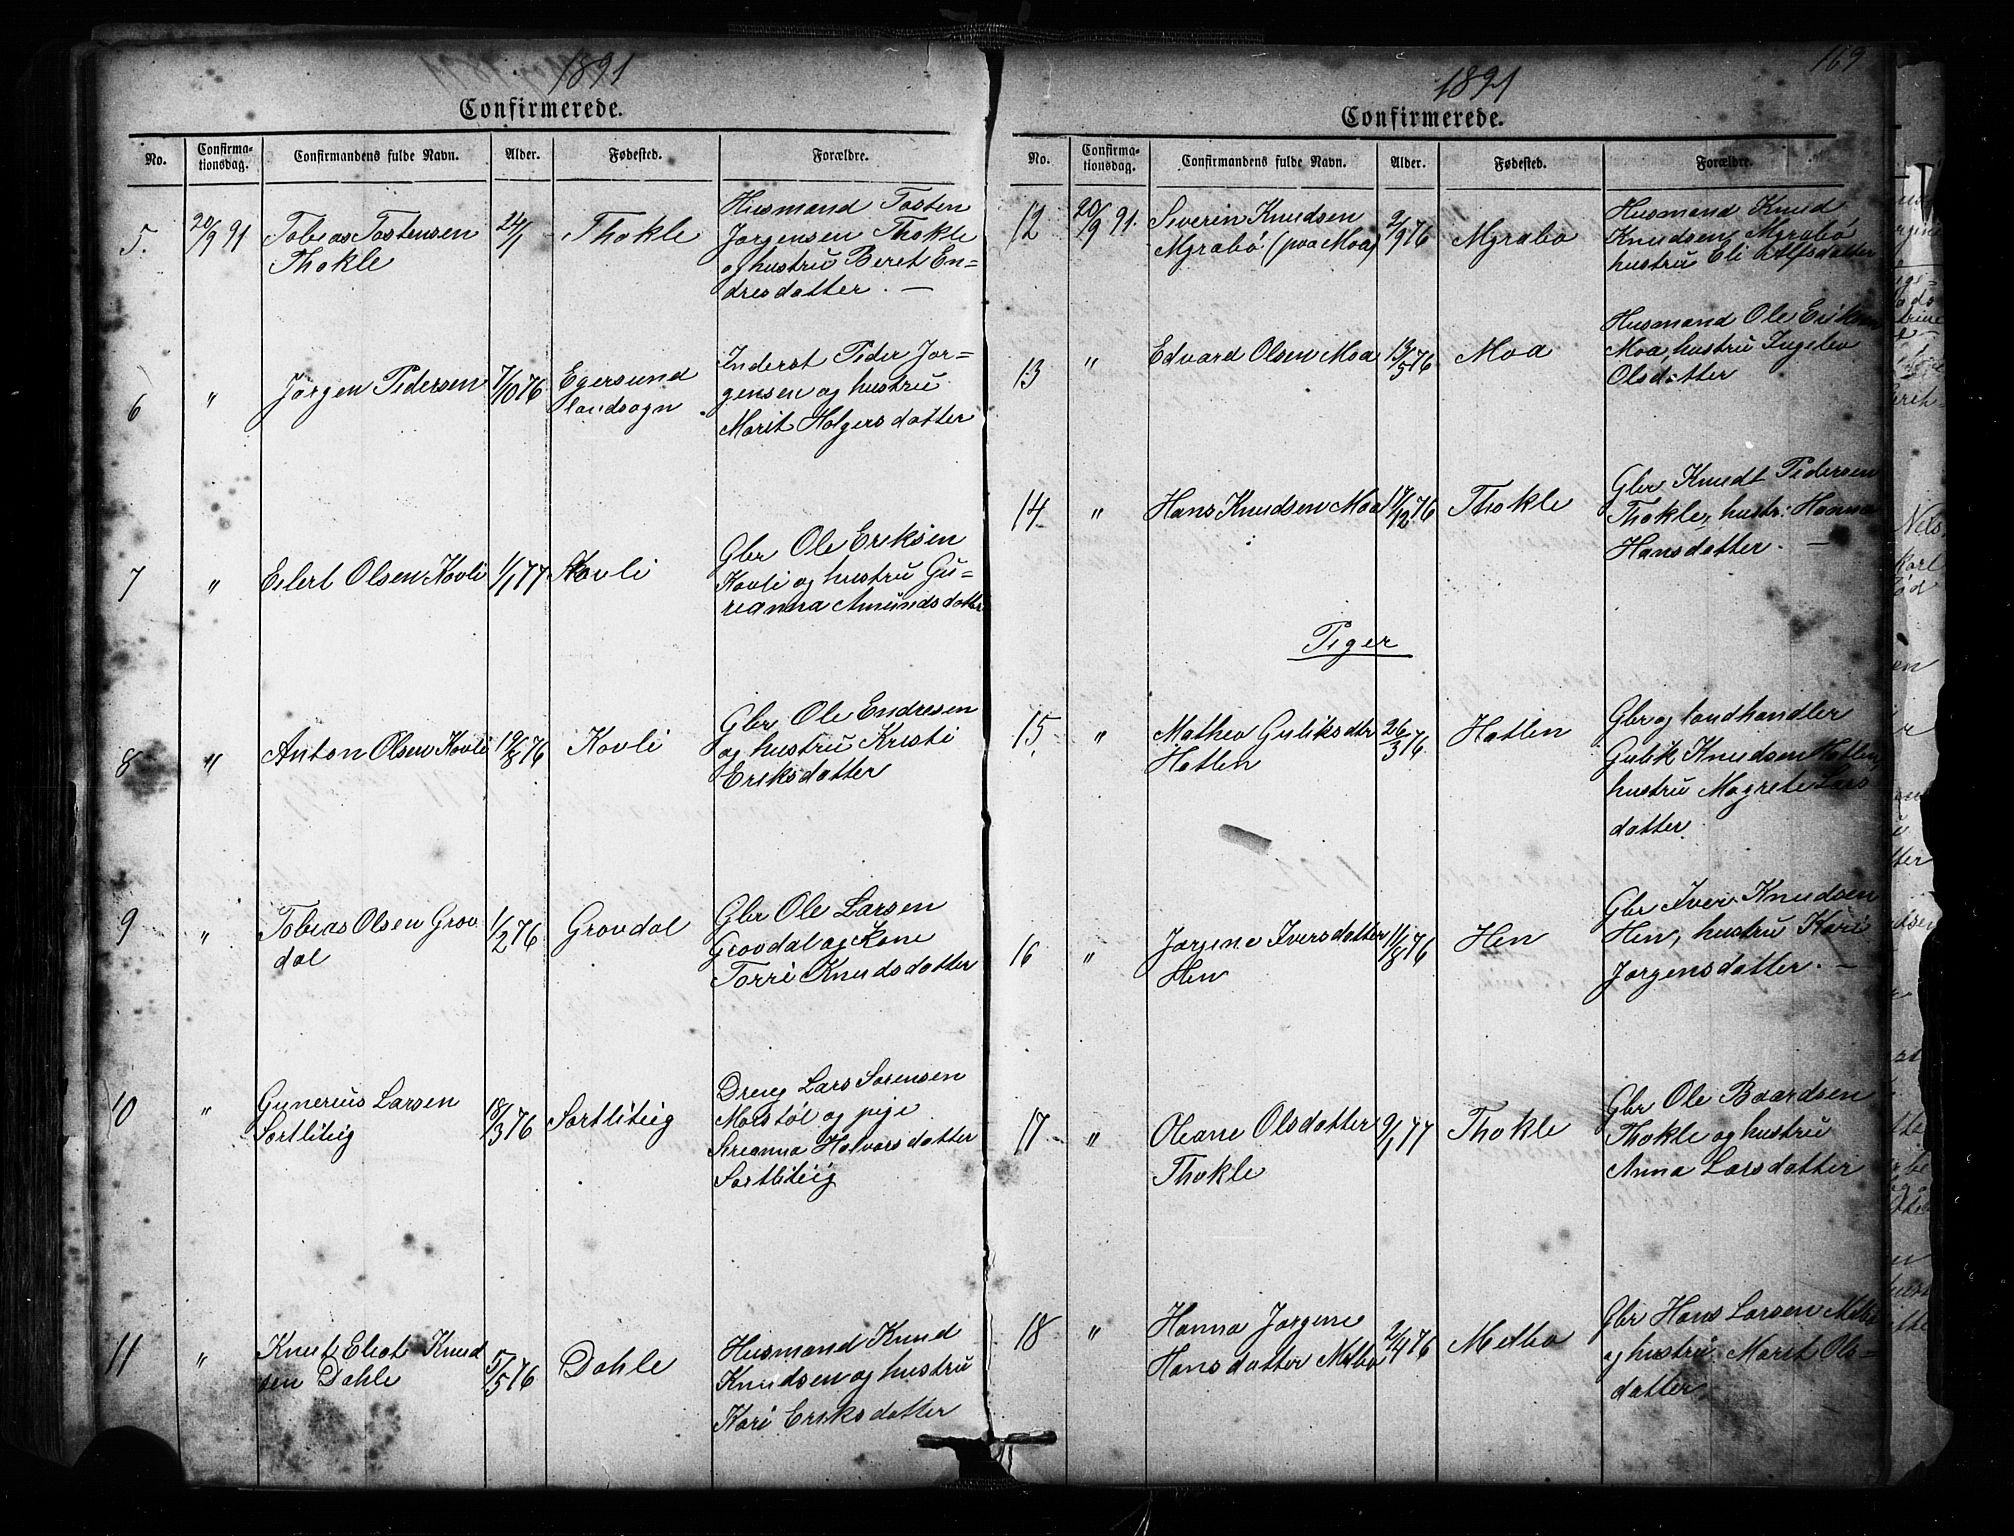 1891
Confirmerede.
No.
Confirma-
tionsdag.
Confirmandens fulde Navn.
Alder.
Fødested.
Forældre.
5.
20/9 91
Tobias Tostensen
Thokle
24/1
Thokle
Husmand Tosten
Jørgensen Thokle
og hustru Beret En-
dresdatter. —
6
"
Jørgen Pedersen
7/10 76
Egersund
landsogn
Inderst Peder Jør-
gensen og hustru
Marit Holgersdatter
7
"
Eilert Olsen Kovli
1/1 77
Kovli
Gbr Ole Eriksen
Kovli og hustru Gu-
rianna Amundsdatter
8
"
Anton Olsen Kovli
19/8 76
Kovli
Gbr Ole Endresen
og hustru Kristi
Eriksdatter
9
"
Tobias Olsen Grov
dal
1/2 76
Grovdal
Gbr Ole Larsen
Grovdal og Kone
Torri Knudsdatter
10
"
Gunerius Larsen
Sortliteig
18/3 76
Sortliteig
Dreng Lars Sørensen
Morstøl og pige
Sirianna Halvorsdatter
Sortliteig
11
"
Knut Eliot Knud
sen Dahle
5/5 76
Dahle
Husmand Knud
Knudsen og hustru
Kari Eriksdatter
169
1891
Confirmerede.
No.
Confirma-
tionsdag.
Confirmandens fulde Navn.
Alder.
Fødested.
Forældre.
12
20/9 91.
Severin Knudsen
Myrabø (paa Moa)
2/9 76
Myrabø
Husmand Knud
Knudsen Myrabø
hustru Eli Alfsdatter
13
"
Edvard Olsen Moa
13/5 76
Moa
Husmand Ole Eriksen
Moa, hustru Ingebo
Olsdatter
14
"
Hans Knudsen Moa
17/12 76
Thokle
Gbr Knudt Pedersen
Thokle, hustr: Hanna
Hansdatter. —
Piger
15.
"
Mathea Guliksdtr
Hatlen
26/3 76
Hatlen
Gbr og landhandler
Gulik Knudsen Hatlen,
hustru Magrete Lars
datter
16
"
Jørgine Iversdatter
Hen
11/8 76
Hen
Gbr Iver Knudsen
Hen, hustru Kari
Jørgensdatter. —
17
"
Oleane Olsdatter
Thokle
2/1 77
Thokle
Gbr Ole Baardsen
Thokle og hustru
Anna Larsdatter
18
"
Hanna Jørgine
Hansdatter Melbø
2/4 76
Melbø
Gbr Hans Larsen Melbø
og hustru Marit Ols-
datter